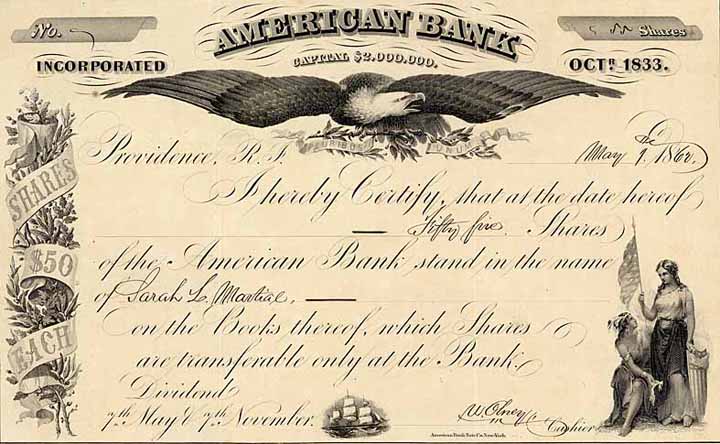 No.
AMERICAN BANK
Shares
CAPITAL $2,000,000.
INCORPORATED
OCTR 1833.
PLURIBUS UNUM
Providence, R. I. May 9. 1862
I hereby Certify, that at the date hereof
Fifty five Shares
of the American Bank stand in the name
of Sarah L. Martial,
on the Books thereof, which Shares
are transferable only at the Bank.
Dividend
7th May & 7th November.
Olney
Cashier
American Bank Note Co. New York.
SHARES
$50
EACH